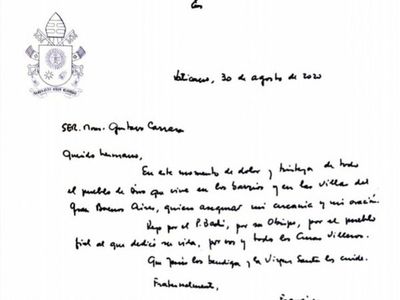 Vaticano, 30 de agosto de 2020
SER. Mons. Gustavo Carrara
Querido hermano,
En este momento de dolor y tristeza de todo
el pueblo de Dios que vive en los barrios y en las villas del
Gran Buenos Aires, quiero asegurar mi cercanía y mi oración.
Rezo por el P. Bachi, por su Obispo, por el pueblo
fiel al que dedicó su vida, por vos y todos los Curas Villeros.
Que Jesús los bendiga y la Virgen Santa los cuide.
Fraternalmente,
Francisco